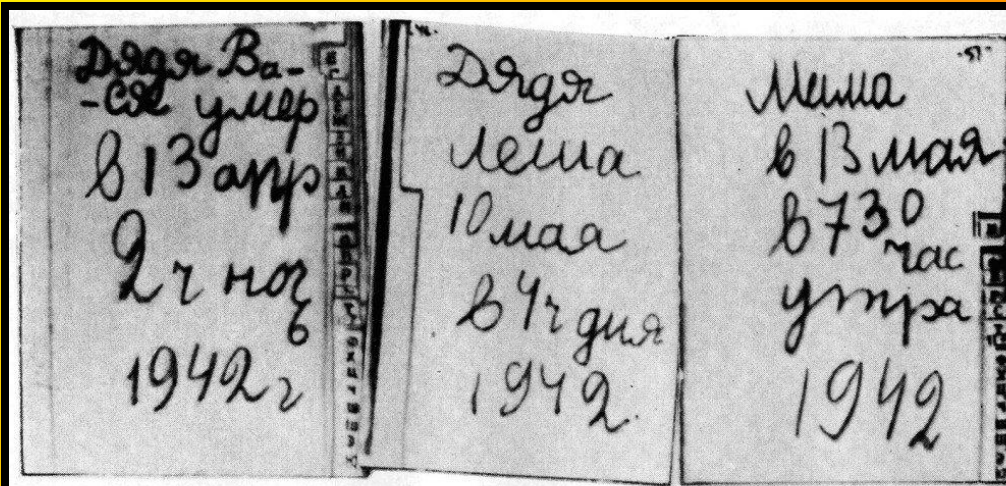 Дядя Ва-
-ся умер
в 13 апр
2 ч ночь
1942 г
Дядя
Леша
10 мая
в 4 ч дня
1942
Мама
в 13 мая
в 730
час
утра
1942